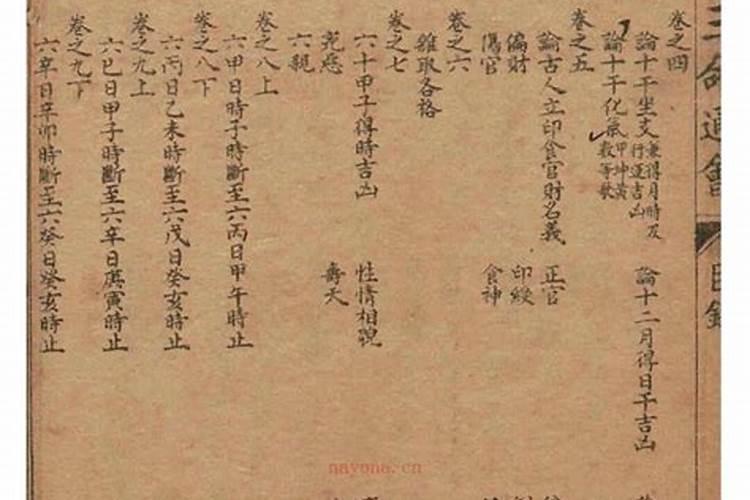 三命通會
目錄
卷之四
論十干坐支兼得月時及行運吉凶
論十二月得日干吉凶
論十干化氣甲坤黃數等歌
卷之五
論古人立印食官財名義
正官
偏財
印綬
傷官
食神
卷之六
雜取各格
卷之七
六十甲子得時吉凶
性情相貌
壽夭
六親
卷之八上
六甲日時子時斷至六丙日甲午時止
卷之八下
六丙日乙未時斷至六戊日癸亥時止
卷之九上
六巳日甲子時斷至六辛日庚寅時止
卷之九下
六辛日辛卯時斷至六癸日癸亥時止
nayona.cn